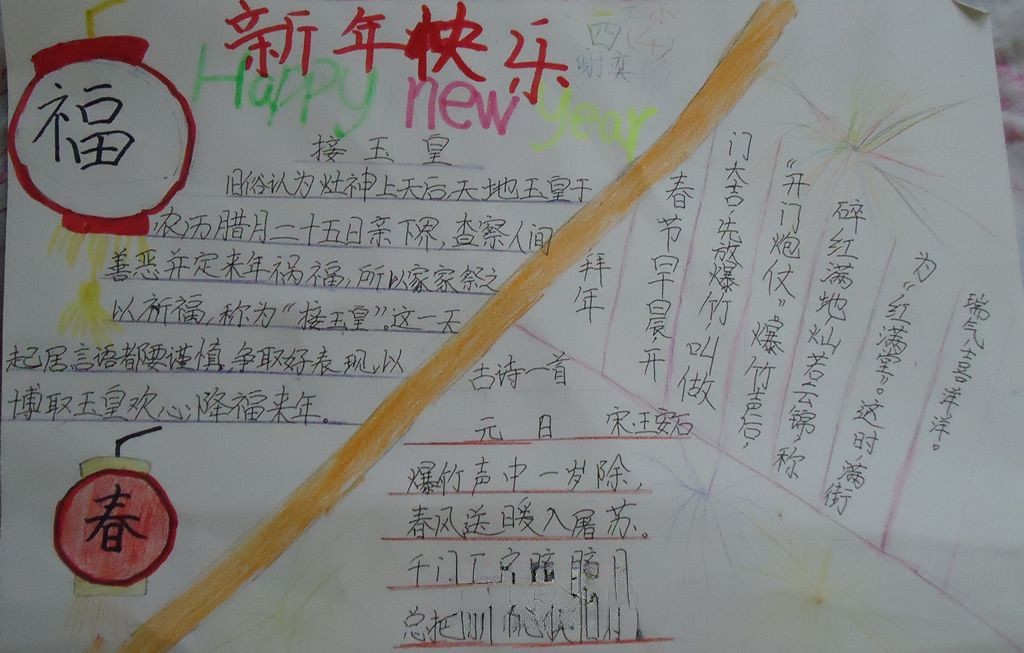 新年快乐
Happy new year
四(4)
谢奕
福
接玉皇
旧俗认为灶神上天后,天地玉皇于
农历腊月二十五日亲下界,查察人间
善恶并定来年祸福,所以家家祭之
以祈福,称为“接玉皇”。这一天
起居言语都要谨慎,争取好表现,以
博取玉皇欢心,降福来年。
春
拜年
春节早晨,开
门大吉,先放爆竹,叫做
“开门炮仗”。爆竹声后,
碎红满地灿若云锦,称
为“红满堂”。这时,满街
瑞气,喜洋洋。
古诗一首
元日 宋:王安石
爆竹声中一岁除,
春风送暖入屠苏。
千门
总把